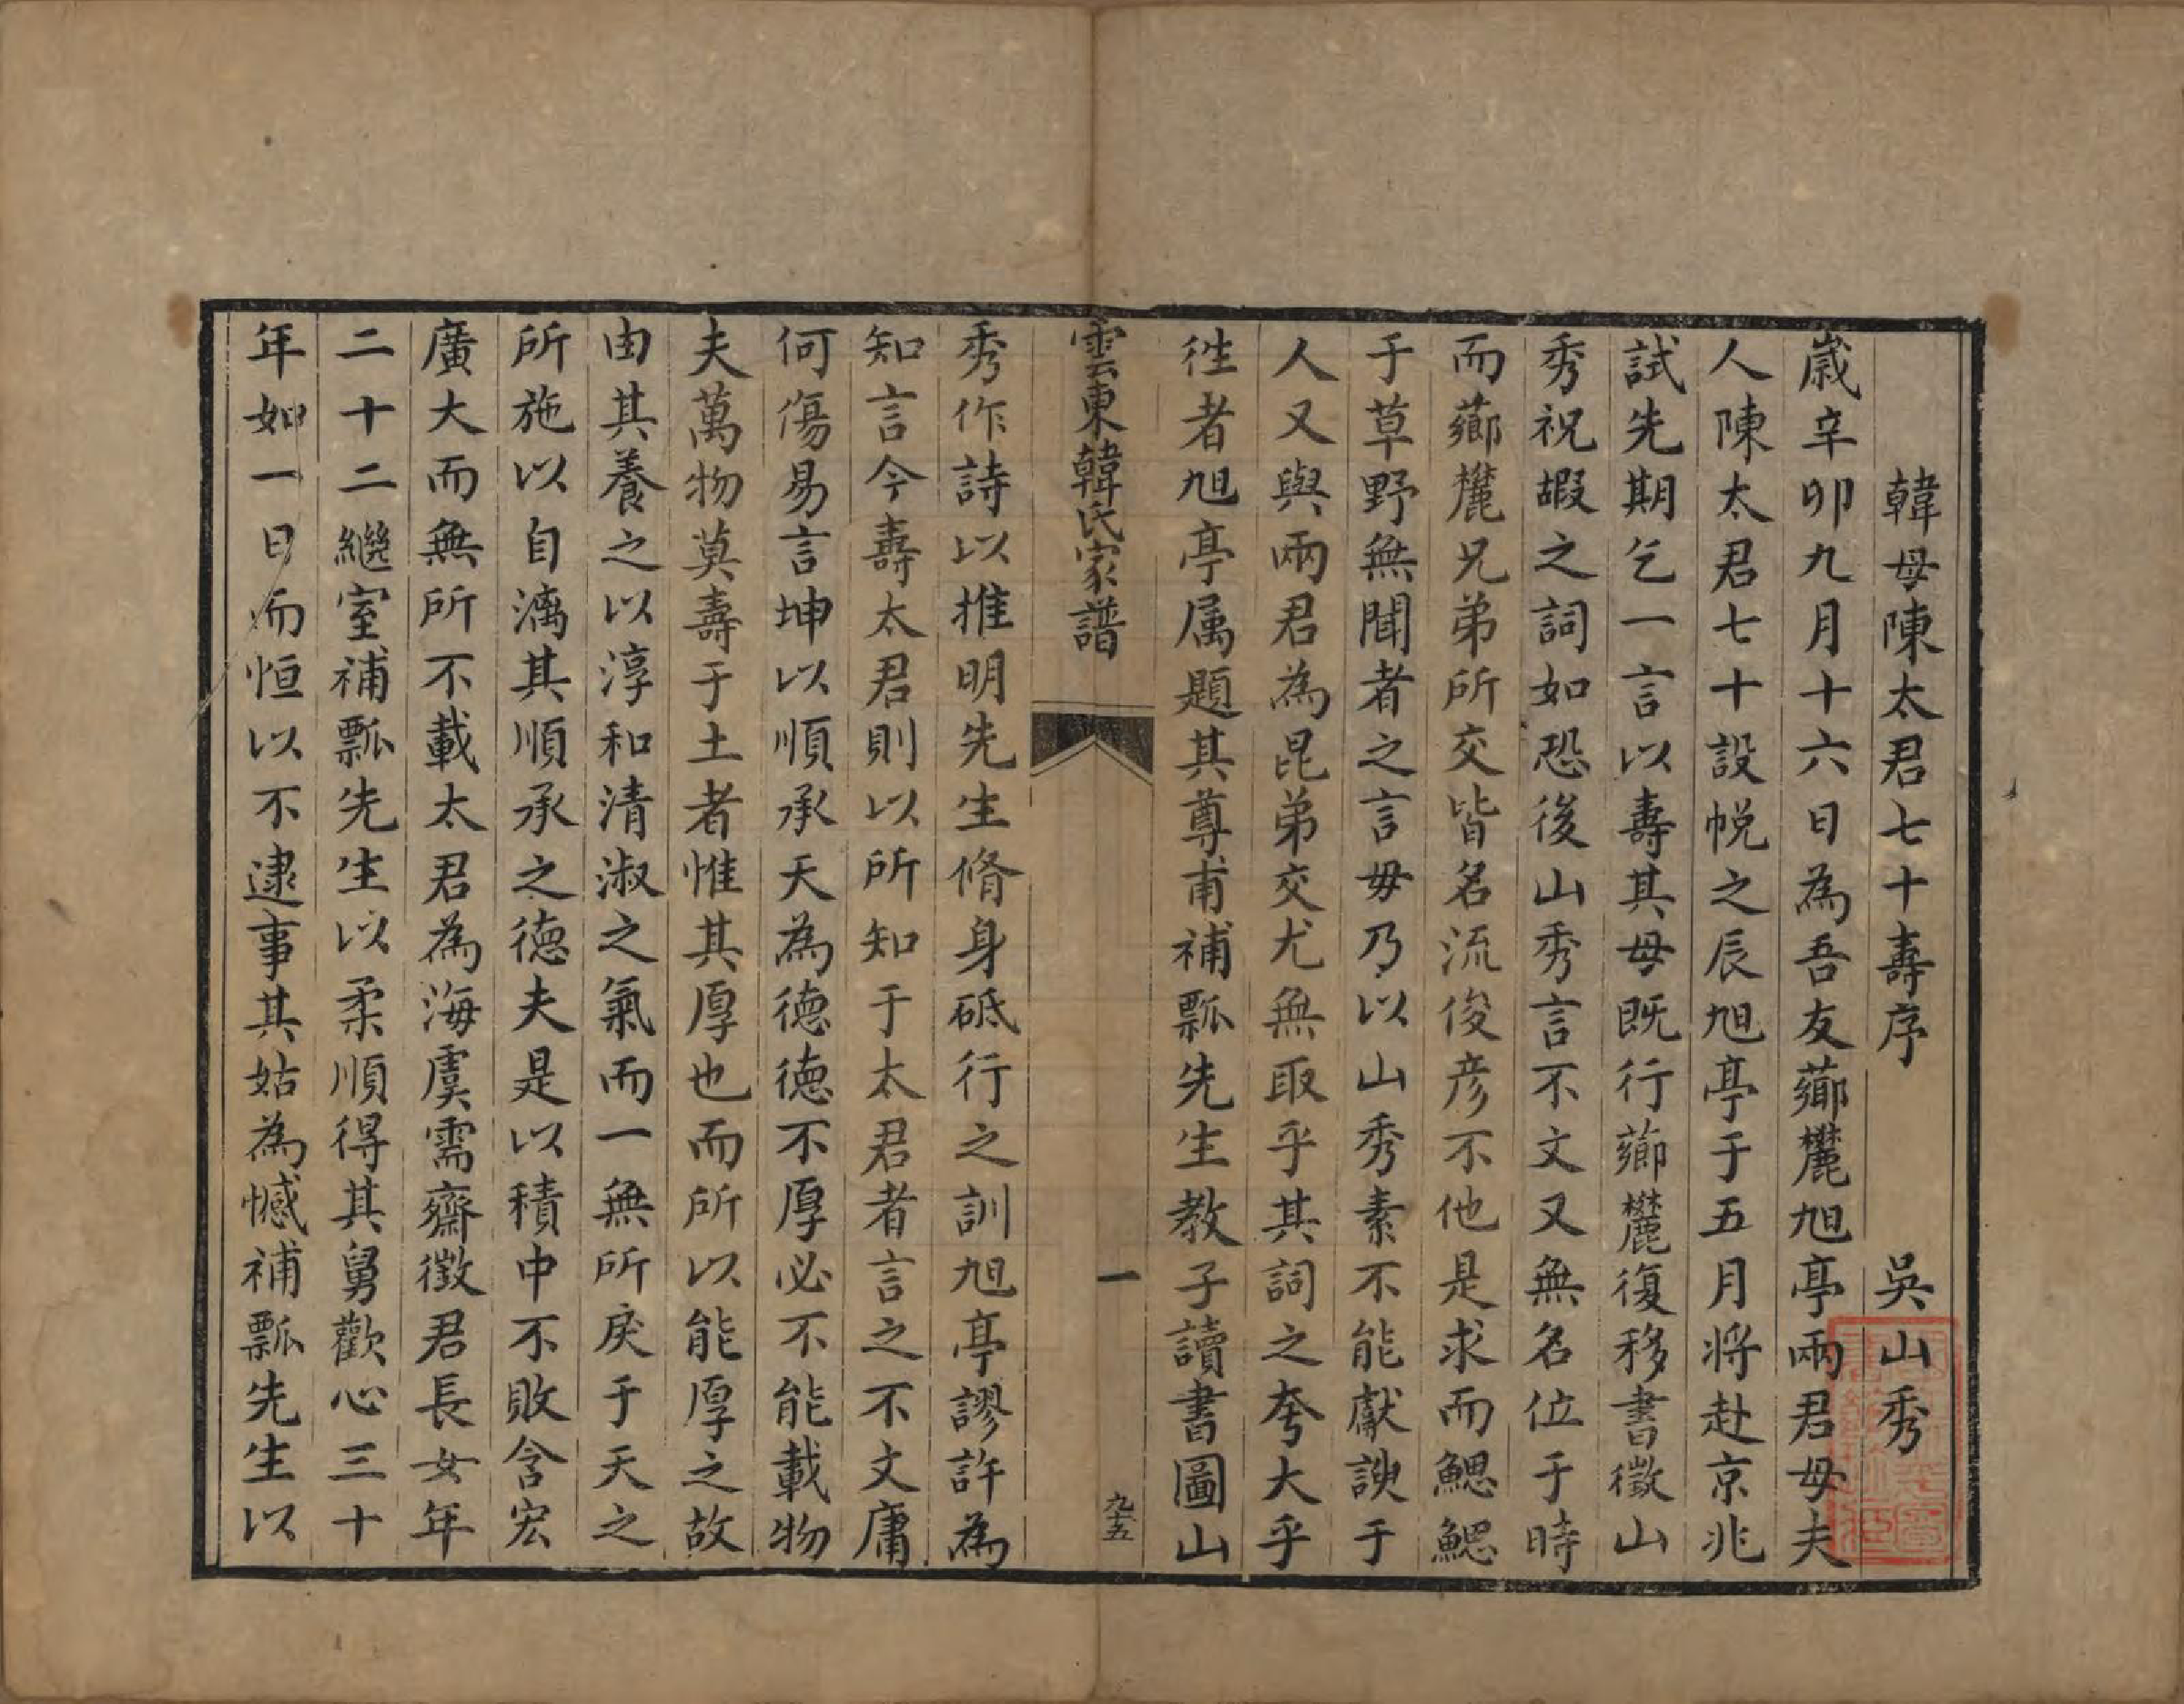 韓母陳太君七十壽序　吳山秀
嵗辛卯九月十六日為吾友薌欉旭亭兩君母夫
人陳太君七十設帨之辰旭亭于五月將赴京兆
試先期乞一言以壽其母既行薌欉復移書徵山
秀祝嘏之詞如恐後山秀言不文又無名位于時
而薌欉兄弟所交皆名流俊彥不他是求而鰓鰓
于草野無聞者之言毋乃以山秀素不能獻諛于
人又與兩君為昆弟交尤無取乎其詞之夸大乎
徃者旭亭属題其尊甫補瓢先生教子讀書圖山
雲東韓氏家譜
一
九五
秀作詩以推明先生脩身砥行之訓旭亭謬許為
知言今壽太君則以所知于太君者言之不文庸
何傷易言坤以順承天為德德不厚必不能載物
夫萬物莫壽于土者惟其厚也而所以能厚之故
由其養之以淳和清淑之氣而一無所戾于天之
所施以自漓其順承之德夫是以積中不敗含宏
廣大而無所不載太君為海虞需齋徵君長女年
二十二繼室補瓢先生以柔順得其舅歡心三十
年如一日而恒以不逮事其姑為憾補瓢先生以